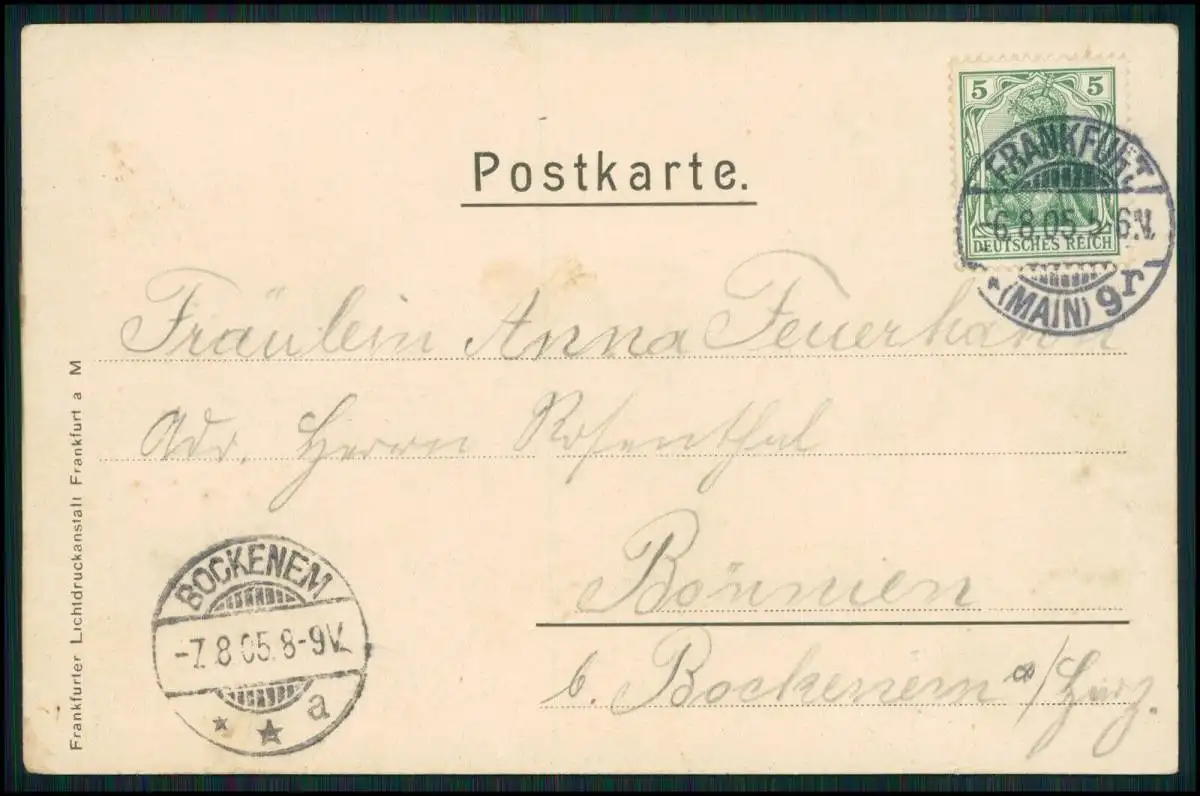 5 5
DEUTSCHES REICH
FRANKFURT
-6.8.05.5-6V.
*(MAIN) 9r
Postkarte.
Fräulein Anna Feuerhahn
Adr. Herrn Rosenthal
Bönnien
b. Bockenem a/Harz.
BOCKENEM
-7.8.05.8-9V.
a
Frankfurter Lichtdruckanstalt Frankfurt a M